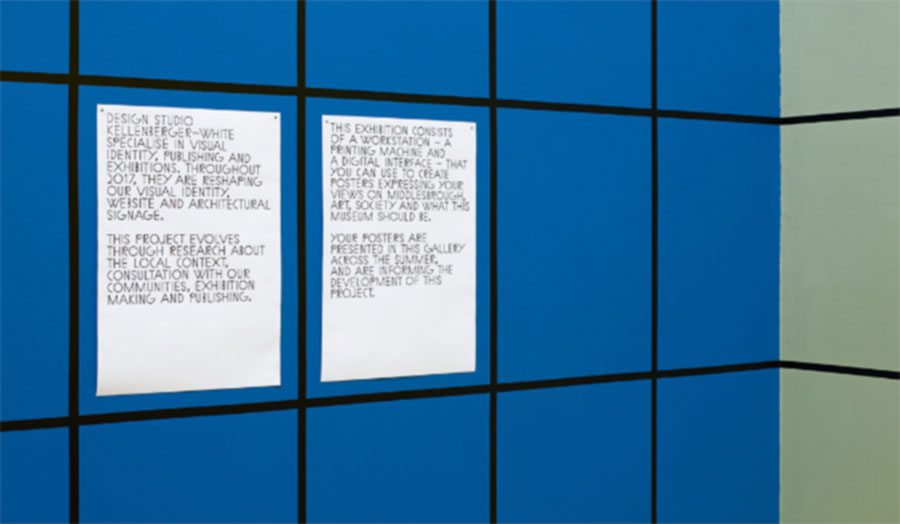 DESIGN STUDIO
KELLENBERGER–WHITE
SPECIALISE IN VISUAL
IDENTITY, PUBLISHING AND
EXHIBITIONS. THROUGHOUT
2017, THEY ARE RESHAPING
OUR VISUAL IDENTITY,
WEBSITE AND ARCHITECTURAL
SIGNAGE.
THIS PROJECT EVOLVES
THROUGH RESEARCH ABOUT
THE LOCAL CONTEXT,
CONSULTATION WITH OUR
COMMUNITIES, EXHIBITION
MAKING AND PUBLISHING.
THIS EXHIBITION CONSISTS
OF A WORKSTATION – A
PRINTING MACHINE AND
A DIGITAL INTERFACE – THAT
YOU CAN USE TO CREATE
POSTERS EXPRESSING YOUR
VIEWS ON MIDDLESBROUGH,
ART, SOCIETY AND WHAT THIS
MUSEUM SHOULD BE.
YOUR POSTERS ARE
PRESENTED IN THIS GALLERY
ACROSS THE SUMMER,
AND ARE INFORMING THE
DEVELOPMENT OF THIS
PROJECT.